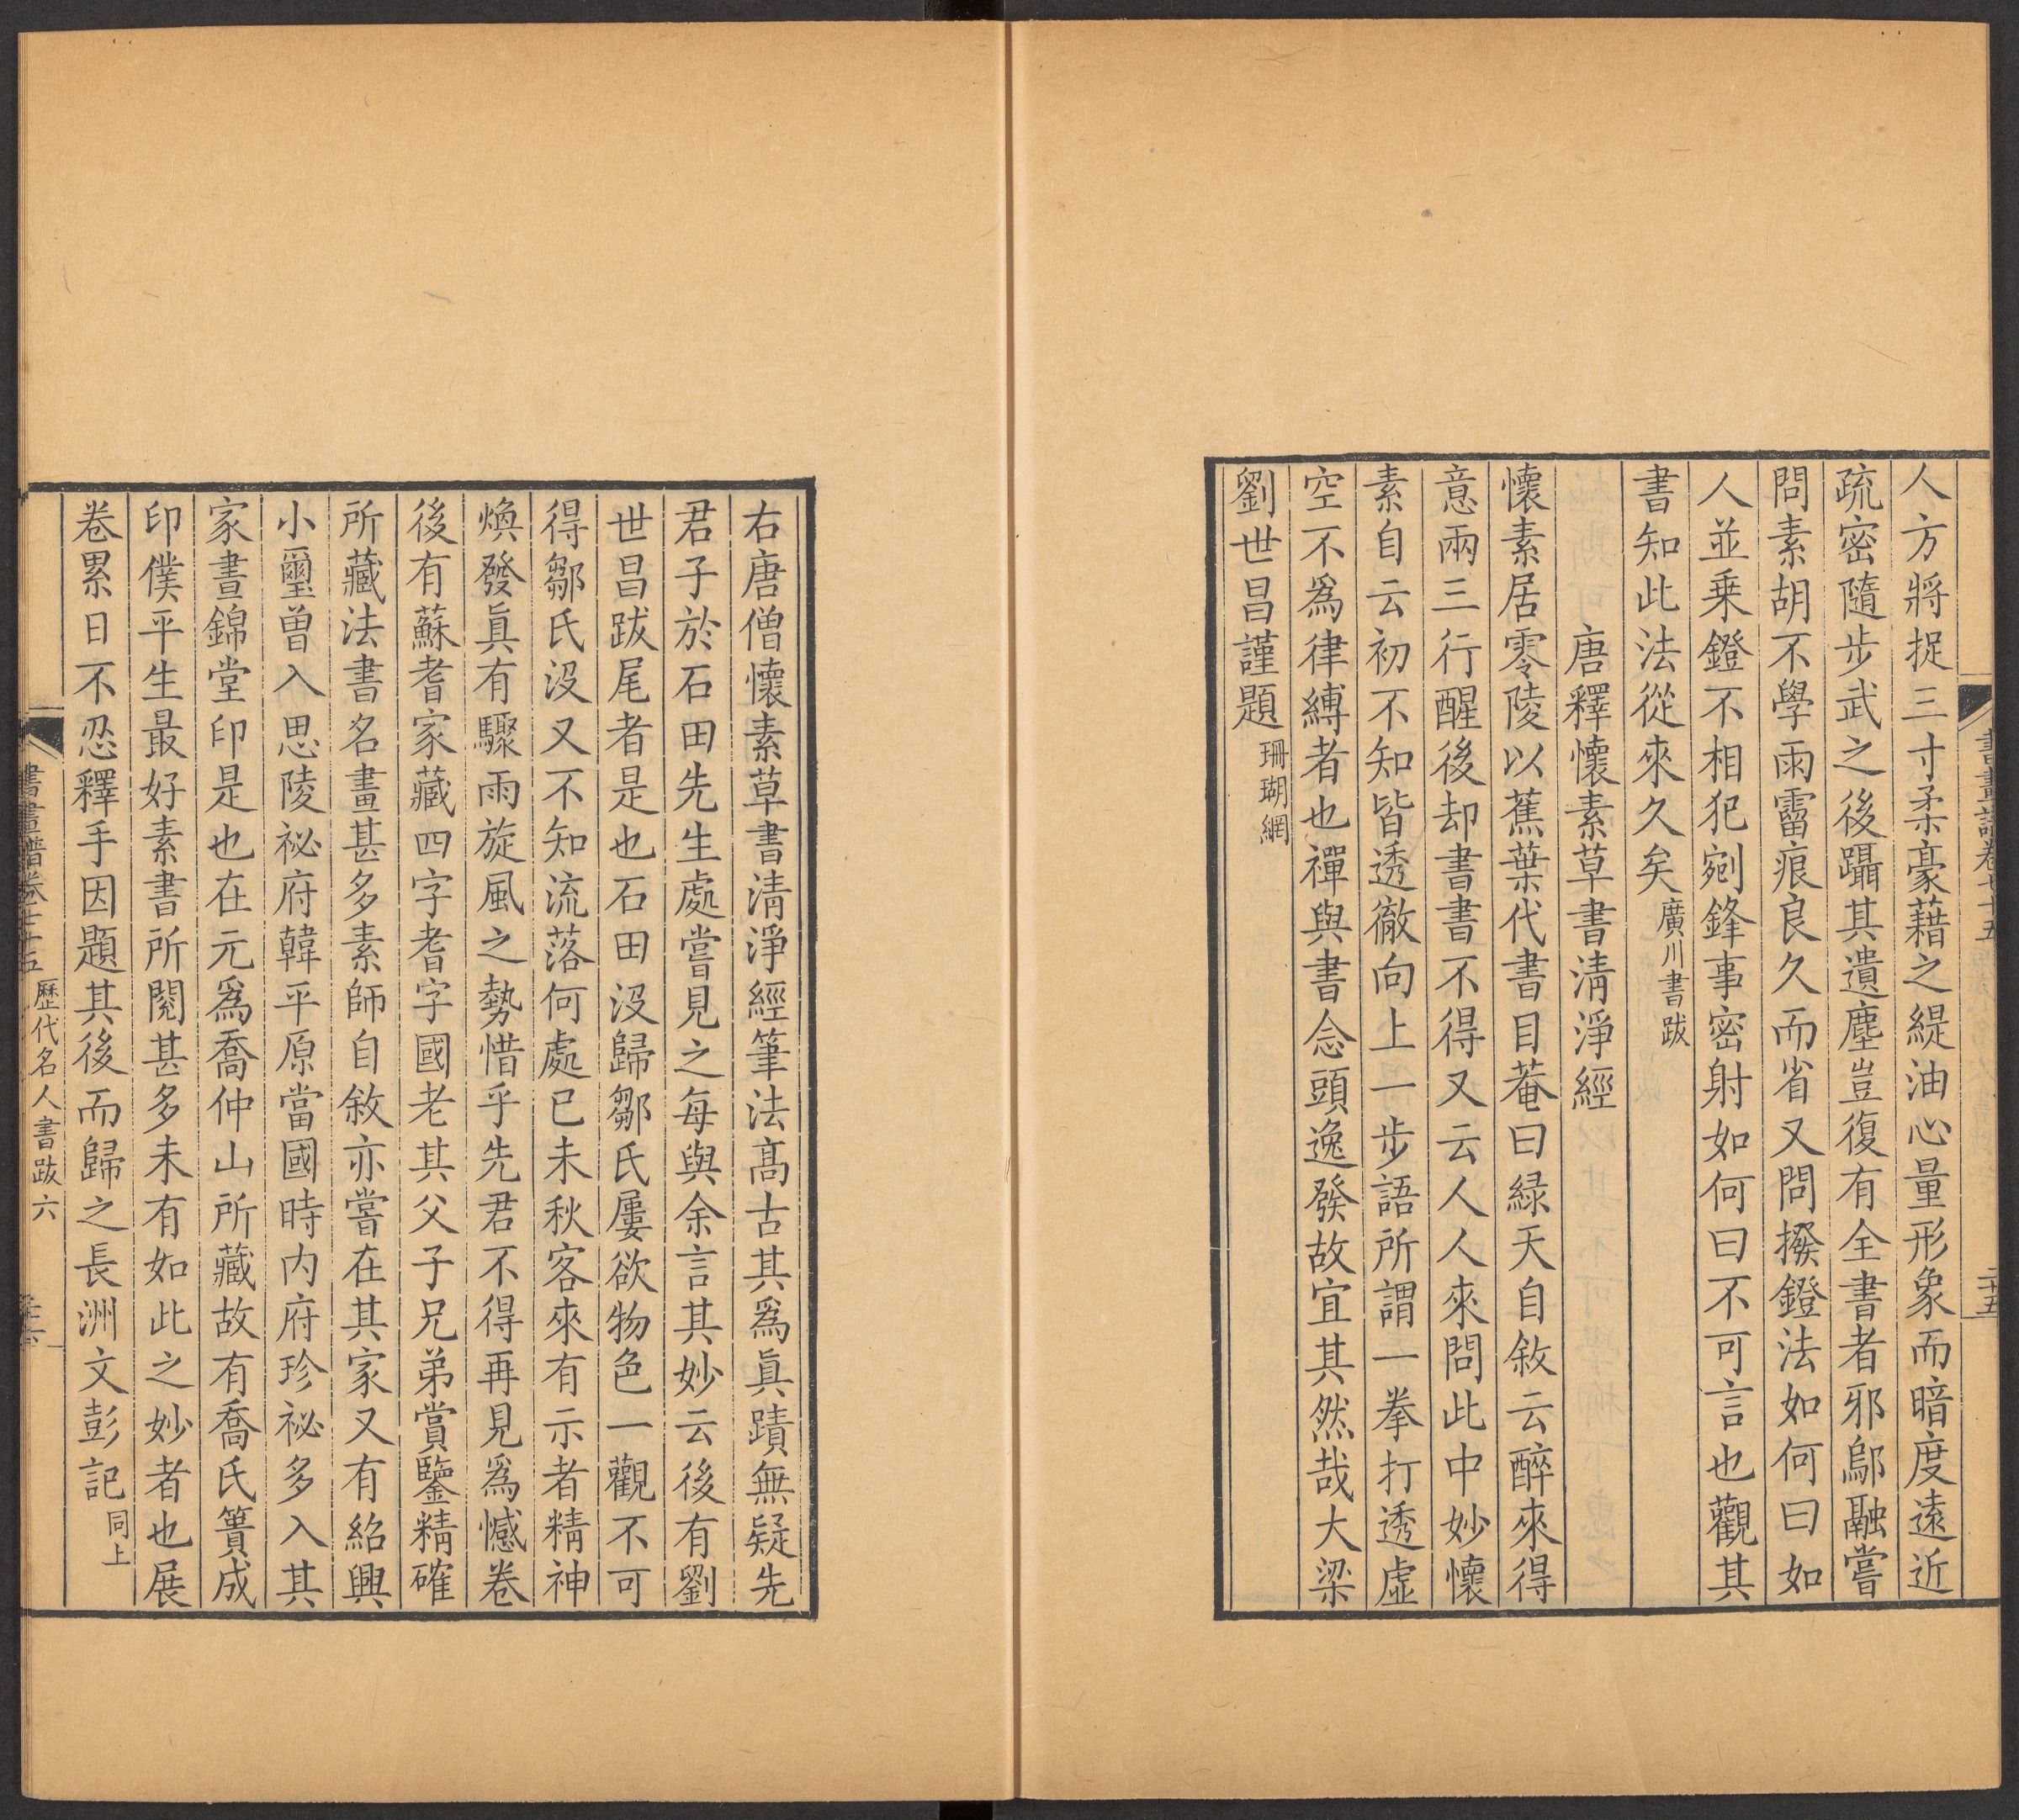 人方將捉三寸柔豪藉之緹油心量形象而暗度遠近
疏密隨步武之後躡其遺塵豈復有全書者邪鄔融嘗
問素胡不學雨霤痕良久而省又問撥鐙法如何曰如
人並乗鐙不相犯剜鋒事密射如何曰不可言也觀其
書知此法從來久矣廣川書跋
唐釋懷素草書淸淨經
懷素居零陵以蕉葉代書目菴曰緑天自敘云醉來得
意兩三行醒後却書書不得又云人人來問此中妙懷
素自云初不知皆透徹向上一步語所謂一拳打透虛
空不爲律縛者也禪與書念頭逸發故宜其然哉大梁
劉世昌謹題珊瑚網
右唐僧懷素草書淸淨經筆法髙古其爲眞蹟無疑先
君子於石田先生處嘗見之每與余言其妙云後有劉
世昌跋尾者是也石田沒歸鄒氏屢欲物色一觀不可
得鄒氏沒又不知流落何處已未秋客來有示者精神
煥發眞有驟雨旋風之勢惜乎先君不得再見爲憾卷
後有蘇耆家藏四字耆字國老其父子兄弟賞鑒精確
所藏法書名畫甚多素師自敘亦嘗在其家又有紹興
小璽曾入思陵祕府韓平原當國時内府珍祕多入其
家晝錦堂印是也在元爲喬仲山所藏故有喬氏簣成
印僕平生最好素書所閱甚多未有如此之妙者也展
卷累日不忍釋手因題其後而歸之長洲文彭記同上
書畫譜卷七十五 歷代名人書跋六